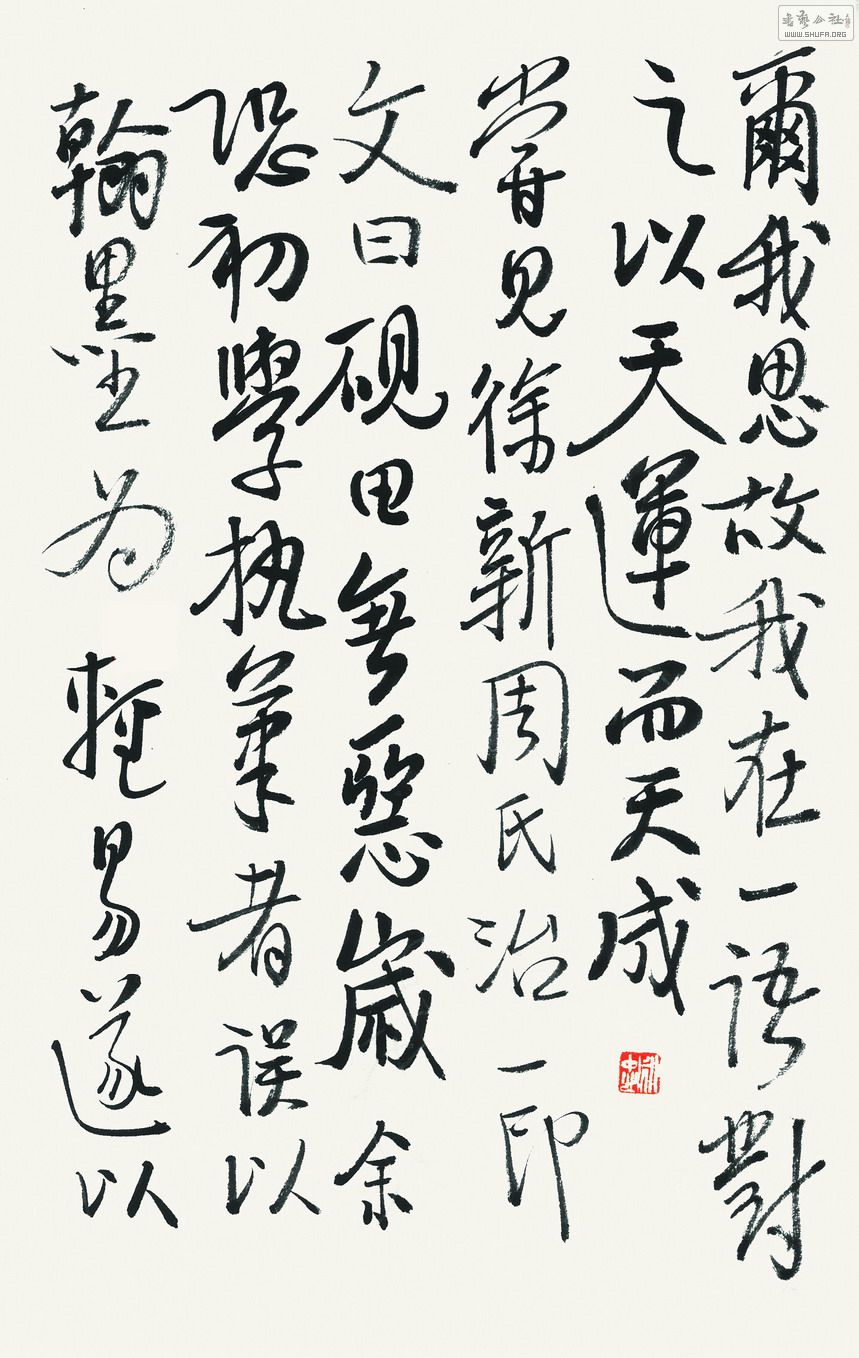 爾我思故我在一語對
之以天運而天成
嘗見徐新周氏治一印
文曰硯田無惡歲余
恐初學執筆者誤以
翰墨為輕易遂以
書藝公社
WWW.SHUFA.ORG